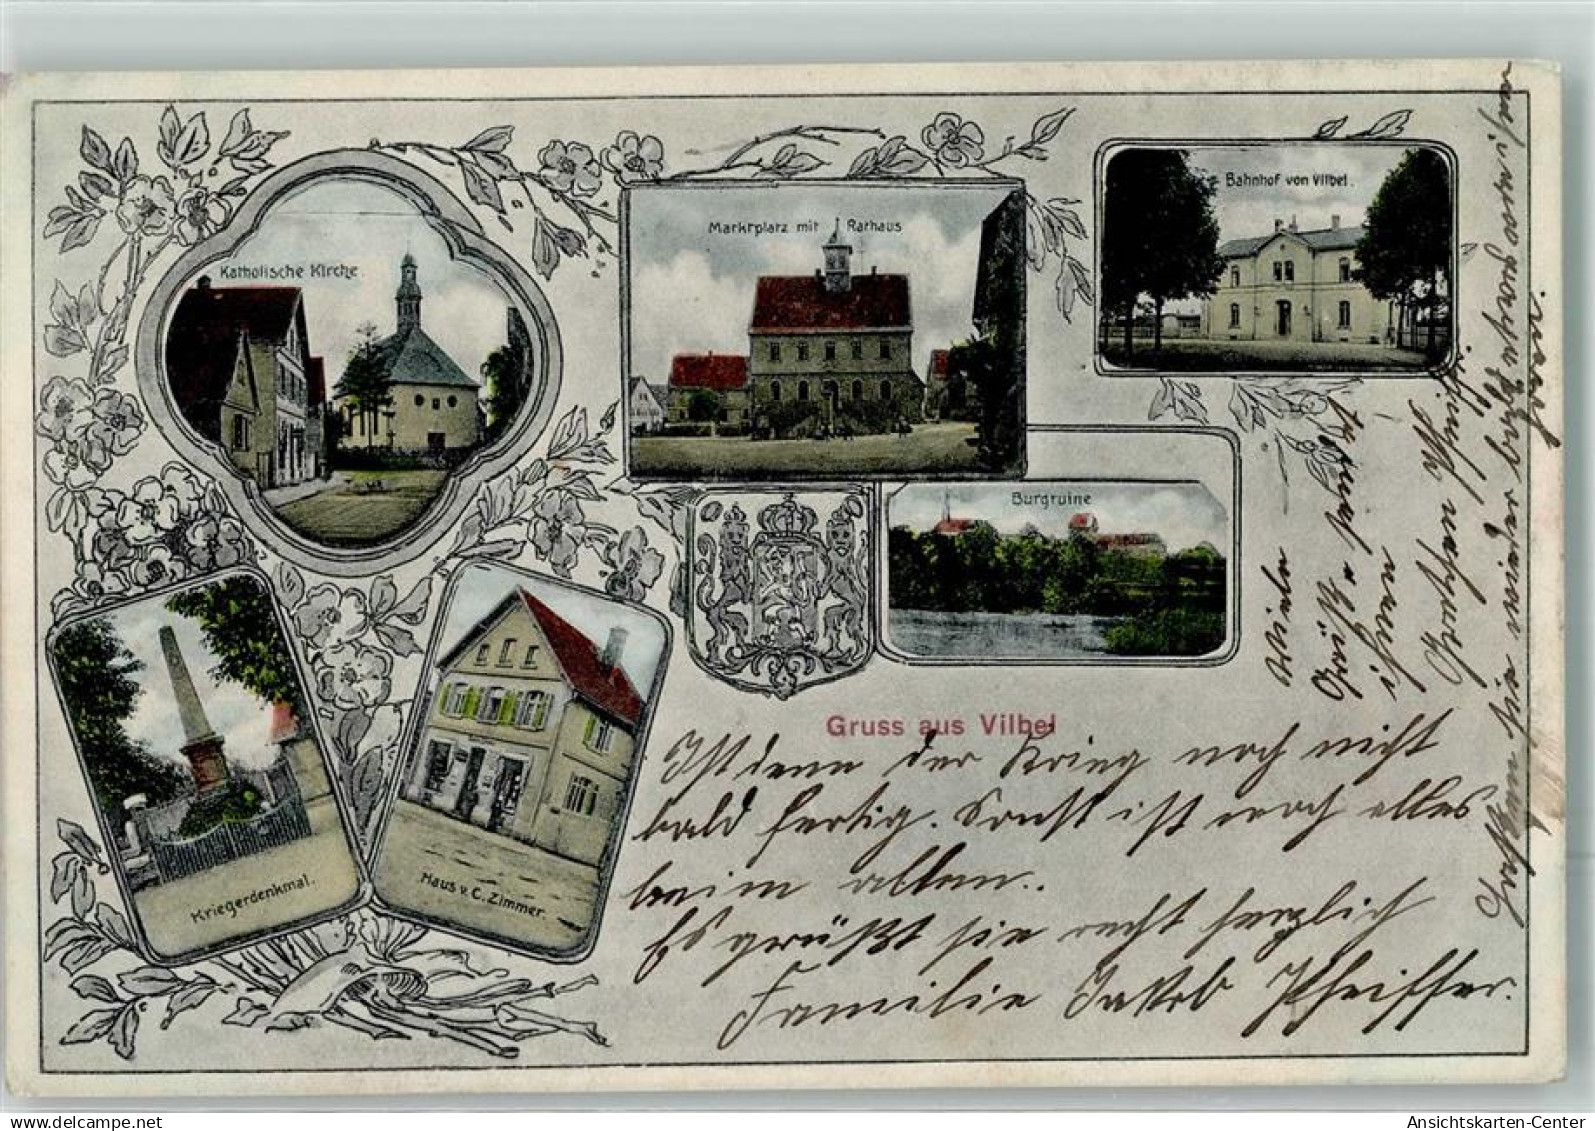 Katholische Kirche.
Marktplatz mit Rathaus
Bahnhof von Vilbel.
Burgruine
Kriegerdenkmal.
Haus v. C. Zimmer.
Gruss aus Vilbel
Ist denn der Krieg noch nicht
bald fertig. Sonst ist noch alles
beim alten..
Es grüßt sie recht herzlich
Familie Jakob Pfeiffer.
Viele
Grüße sendet
ihnen
Gretchen
sie wieder bald
Ansichtskarten-Center